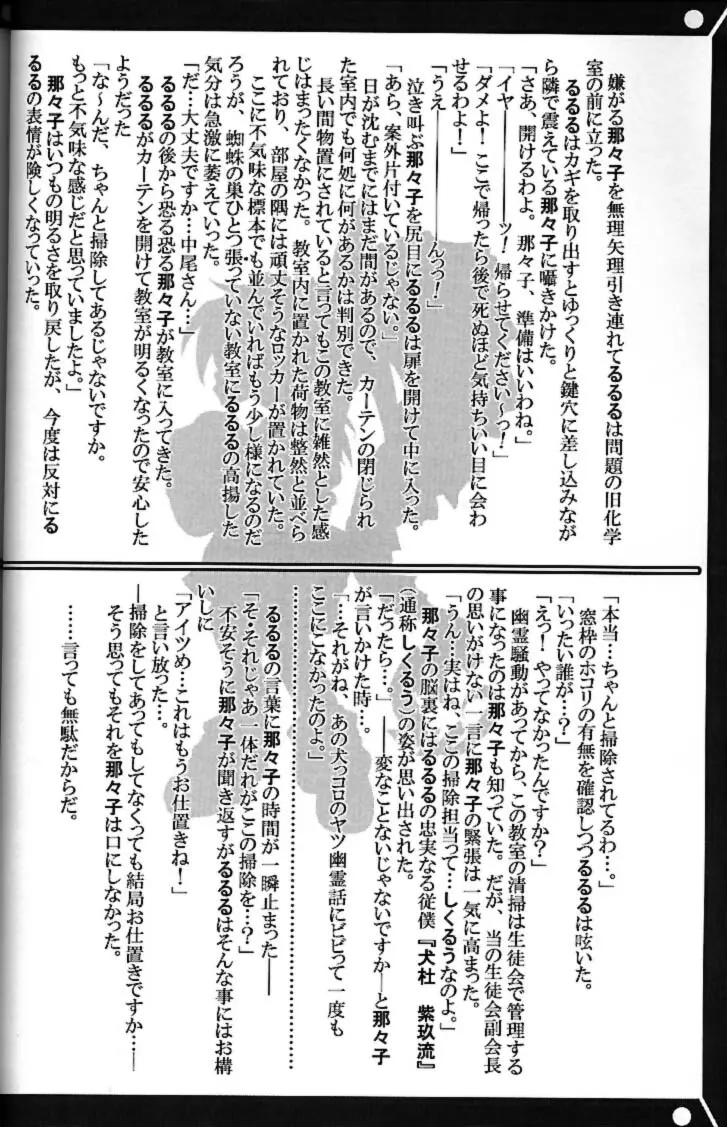 嫌がる那々子を無理矢理引き連れてるるるは問題の旧化学
室の前に立った。
るるるはカギを取り出すとゆっくりと鍵穴に差し込みなが
ら隣で震えている那々子に囁きかけた。
「さあ、開けるわよ。那々子、準備はいいわね。」
「イヤ――――ッ！帰らせてください～っ！」
「ダメよ！ここで帰ったら後で死ぬほど気持ちいい目に会わ
せるわよ！」
「うえ――――んっっ！」
泣き叫ぶ那々子を尻目にるるるは扉を開けて中に入った。
「あら、案外片付いているじゃない。」
日が沈むまでにはまだ間があるので、カーテンの閉じられ
た室内でも何処に何があるかは判別できた。
長い間物置にされていると言ってもこの教室に雑然とした感
じはまったくなかった。教室内に置かれた荷物は整然と並べら
れており、部屋の隅には頑丈そうなロッカーが置かれていた。
ここに不気味な標本でも並んでいればもう少し様になるのだ
ろうが、蜘蛛の巣ひとつ張っていない教室にるるるの高揚した
気分は急激に萎えていった。
「だ…大丈夫ですか…中尾さん…」
るるるの後から恐る恐る那々子が教室に入ってきた。
るるるがカーテンを開けて教室が明るくなったので安心した
ようだった
「な～んだ、ちゃんと掃除してあるじゃないですか。
もっと不気味な感じだと思っていましたよ。」
那々子はいつもの明るさを取り戻したが、今度は反対にる
るるの表情が険しくなっていった。
「本当…ちゃんと掃除されてるわ…。」
窓枠のホコリの有無を確認しつつるるるは呟いた。
「いったい誰が…？」
「えっ！やってなかったんですか？」
幽霊騒動があってから、この教室の清掃は生徒会で管理する
事になったのは那々子も知っていた。だが、当の生徒会副会長
の思いがけない一言に那々子の緊張は一気に高まった。
「うん…実はね、ここの掃除担当って…しくるうなのよ。」
那々子の脳裏にはるるるの忠実なる従僕『犬杜　紫玖流』
（通称しくるう）の姿が思い出された。
「だったら…。」――変なことないじゃないですか―と那々子
が言いかけた時…。
「…それがね、あの犬っコロのヤツ幽霊話にビビって一度も
ここにこなかったのよ。」
………………………………………………………
るるるの言葉に那々子の時間が一瞬止まった――
「そ・それじゃあ一体だれがここの掃除を…？」
不安そうに那々子が聞き返すがるるるはそんな事にはお構
いしに
「アイツめ…これはもうお仕置きね！」
と言い放った…。
―掃除をしてあってもしてなくっても結局お仕置きですか―
そう思ってもそれを那々子は口にしなかった。
……言っても無駄だからだ。